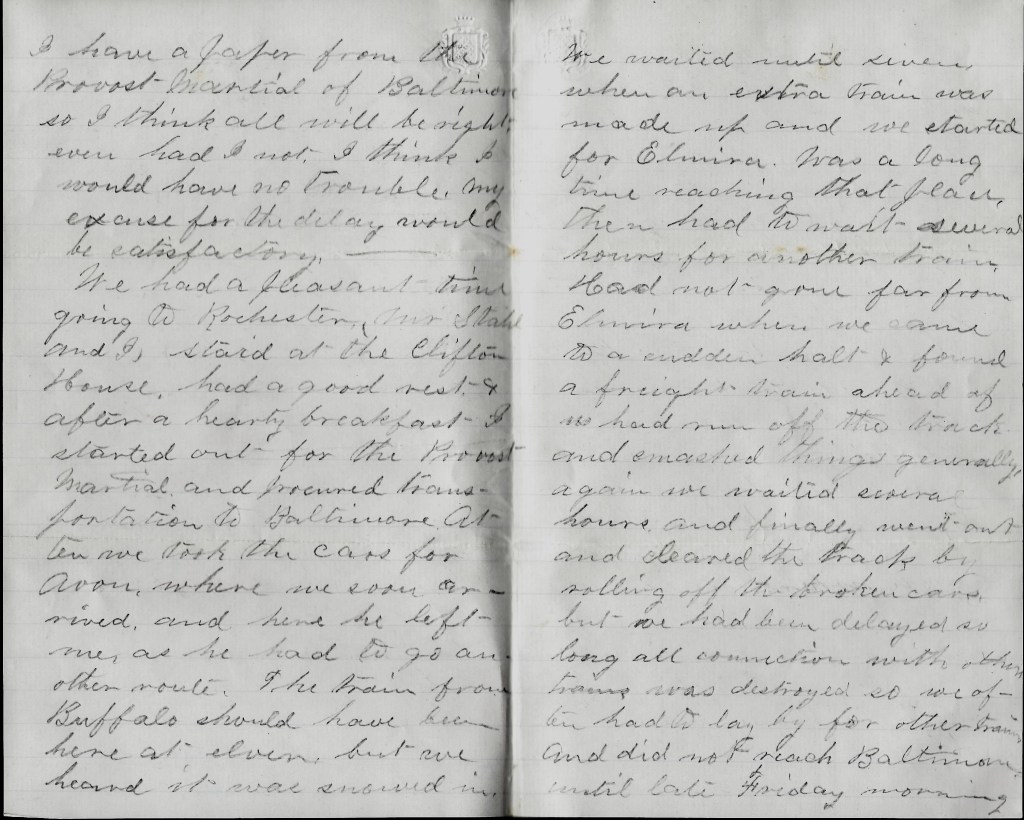 I have a paper from the
Provost Martial of Baltimore
so I think all will be right,
even had I not, I think I
would have no trouble, my
excuse for the delay would
be satisfactory. ———
We had a pleasant time
going to Rochester, Mr Stahl
and I, staid at the Clifton
House, had a good rest &
after a hearty breakfast I
started out for the Provost
Martial, and procured trans-
portation to Baltimore. At
ten we took the cars for
Avon, where we soon ar-
rived, and here he left
me, as he had to go an-
other route. The train from
Buffalo should have been
here at elven, but we
heard it was snowed in.
We waited until seven,
when an extra train was
made up and we started
for Elmira. Was a long
time reaching that place,
then had to wait several
hours for another train.
Had not gone far from
Elmira when we came
to a sudden halt & found
a freight train ahead of
us had run off the track
and smashed things generally,
again we waited several
hours and finally went out
and cleared the track by
rolling off the broken cars,
but we had been delayed so
long all connection with other
trains was destroyed so we of-
ten had to lay by for other trains
and did not reach Baltimore
until late Friday morning